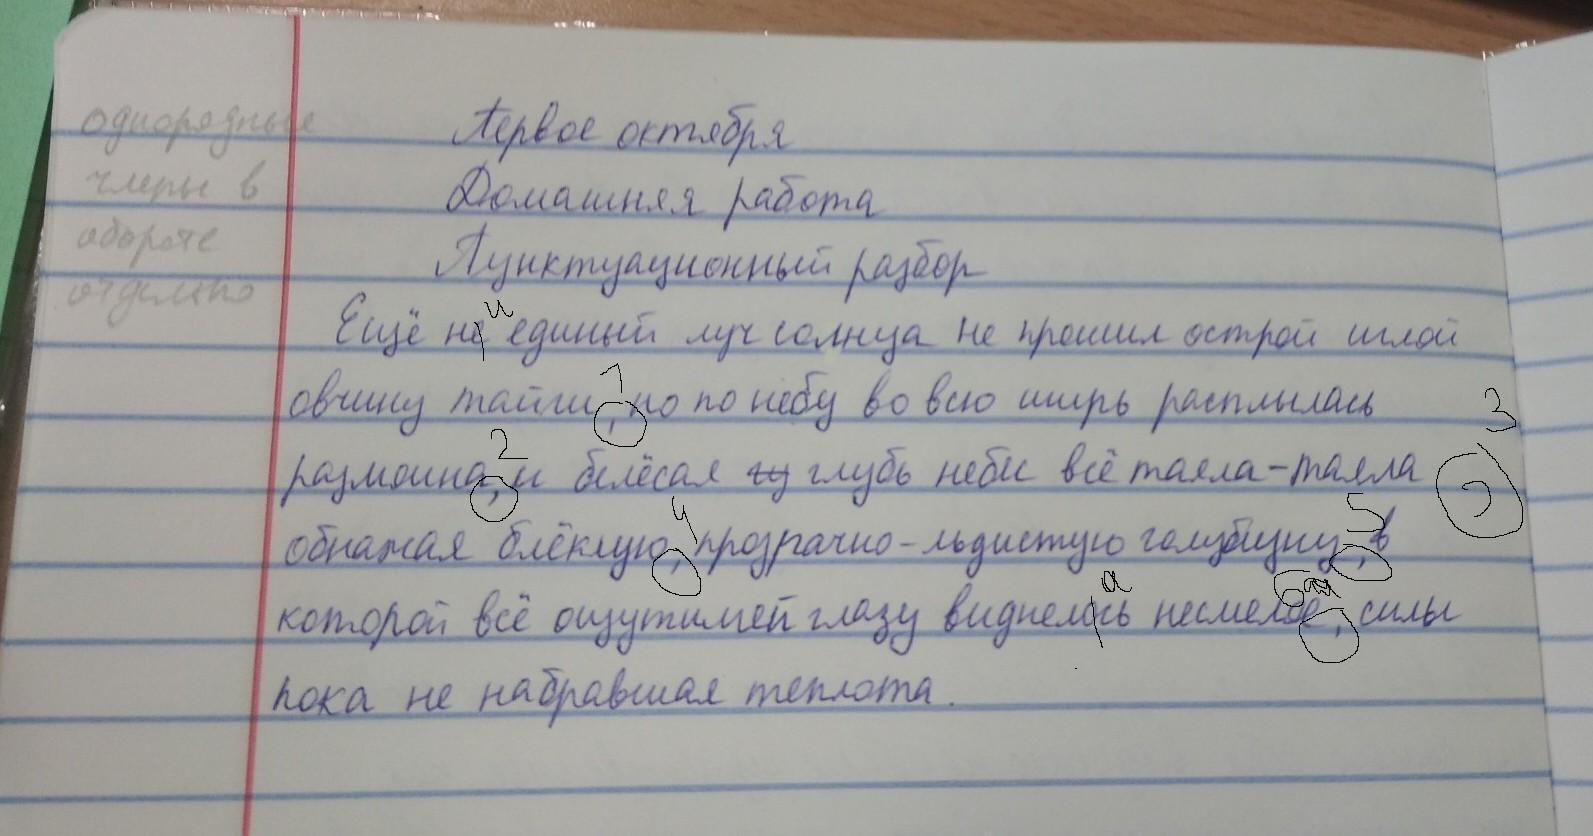 однородные
члены в
обороте
отдельно
Первое октября
Домашняя работа
Пунктуационный разбор
и
Ещё не единый луч солнца не прошил острой иглой
1
овчину тайги, но по небу во всю ширь расплылась
2
3
размоина, и белёсая глубь неба всё таяла-таяла ,
4
5
обнажая блёклую, прозрачно-льдистую голубизну, в
а
6 ая
которой всё ощутимей глазу виднелось несмелое, силы
пока не набравшая теплота.